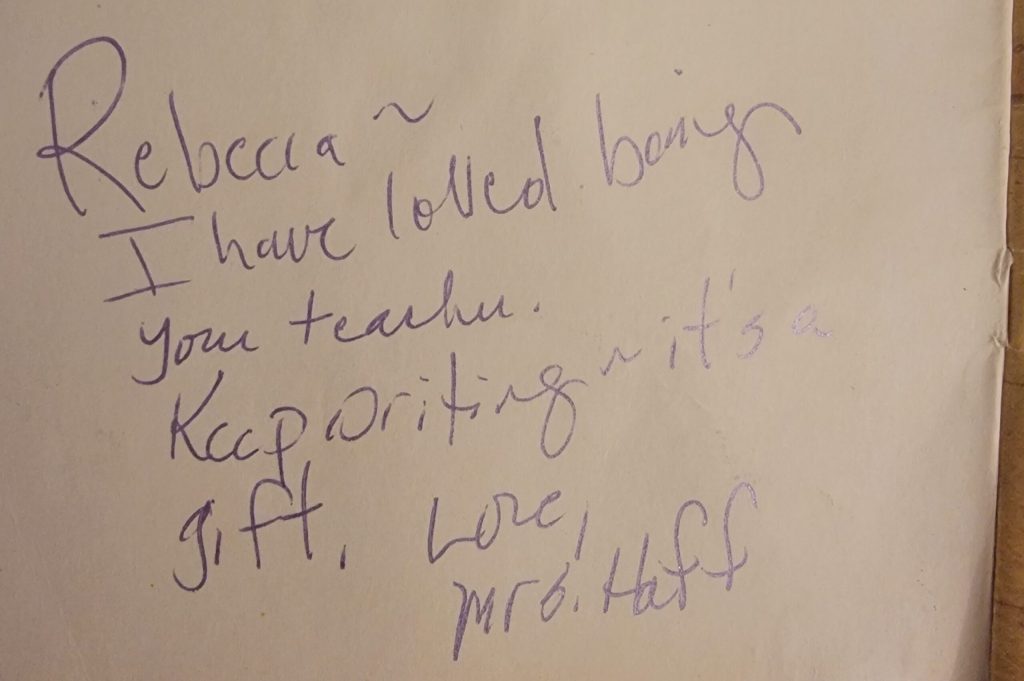 Rebecca ~
I have loved being
your teacher.
Keep writing ~ it's a
gift. Love,
Mrs. Haff